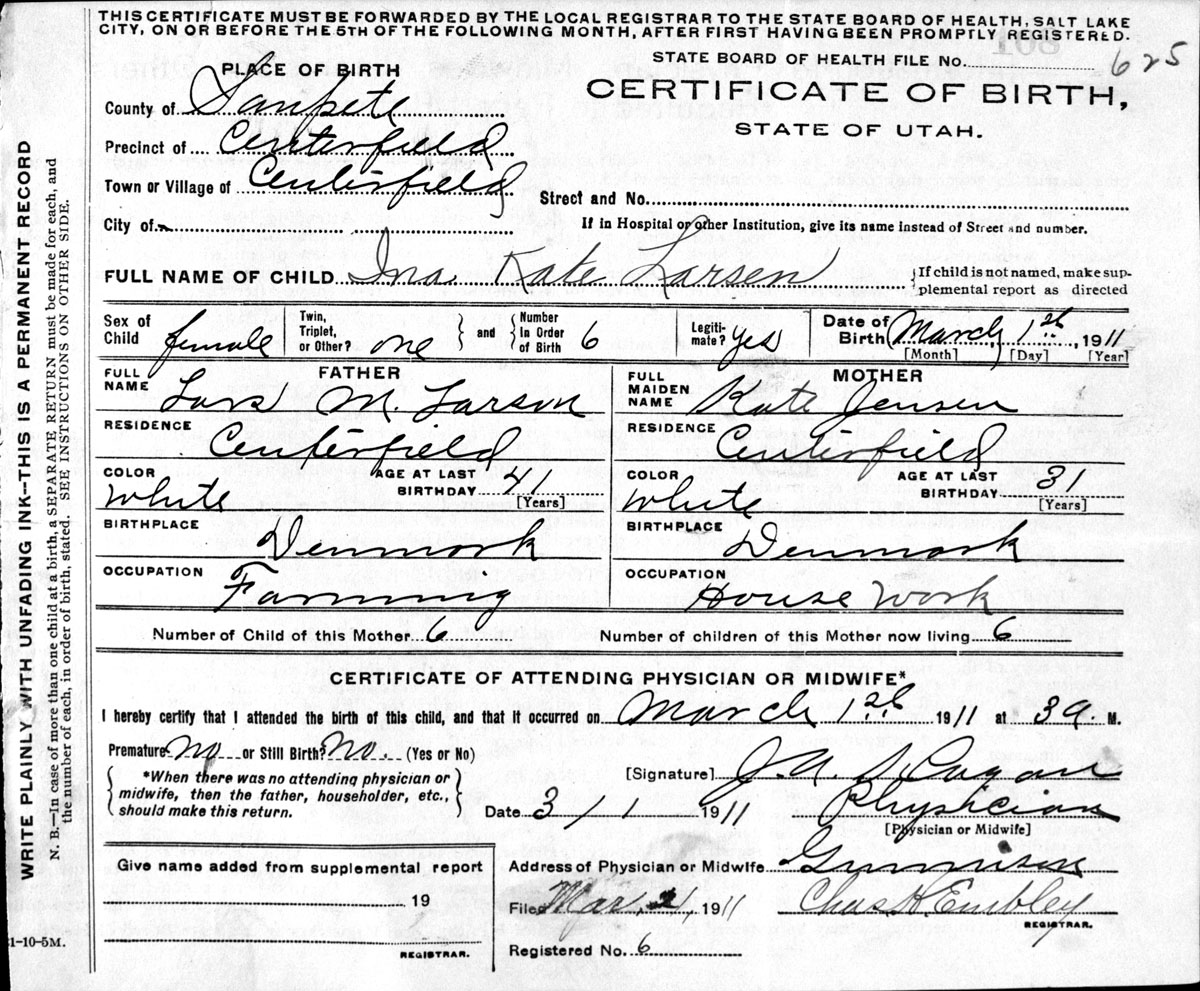 THIS CERTIFICATE MUST BE FORWARDED BY THE LOCAL REGISTRAR TO THE STATE BOARD OF HEALTH, SALT LAKE
CITY, ON OR BEFORE THE 5TH OF THE FOLLOWING MONTH, AFTER FIRST HAVING BEEN PROMPTLY REGISTERED.
STATE BOARD OF HEALTH FILE No. 625
CERTIFICATE OF BIRTH,
STATE OF UTAH.
PLACE OF BIRTH
County of Sanpete
Precinct of Centerfield
Town or Village of Centerfield
City of
Street and No.
If in Hospital or other Institution, give its name instead of Street and number.
FULL NAME OF CHILD Ina Kate Larsen
{If child is not named, make sup-
plemental report as directed
Sex of Child female
Twin, Triplet, or Other? one } and { Number In Order of Birth 6
Legiti-mate? yes
Date of Birth March 1st, 1911
[Month] [Day] [Year]
FATHER
FULL NAME Lars M. Larson
RESIDENCE Centerfield
COLOR White
AGE AT LAST BIRTHDAY 41 [Years]
BIRTHPLACE Denmark
OCCUPATION Farming
MOTHER
FULL MAIDEN NAME Kate Jensen
RESIDENCE Centerfield
COLOR White
AGE AT LAST BIRTHDAY 31 [Years]
BIRTHPLACE Denmark
OCCUPATION House Work
Number of Child of this Mother 6 Number of children of this Mother now living 6
CERTIFICATE OF ATTENDING PHYSICIAN OR MIDWIFE*
I hereby certify that I attended the birth of this child, and that it occurred on March 1st 1911 at 3 a. M.
Premature no or Still Birth? no. (Yes or No)
{*When there was no attending physician or
midwife, then the father, householder, etc.,
should make this return.}
[Signature]
Date 3/1 1911 Physician
[Physician or Midwife]
Address of Physician or Midwife Gunnison
Filed Mar. 2, 1911 Chas. H. Embley
REGISTRAR.
Registered No. 6
Give name added from supplemental report
19
REGISTRAR.
WRITE PLAINLY WITH UNFADING INK--THIS IS A PERMANENT RECORD
N. B.--In case of more than one child at a birth, a SEPARATE RETURN must be made for each, and
the number of each, in order of birth, stated. SEE INSTRUCTIONS ON OTHER SIDE.
1-10-5M.